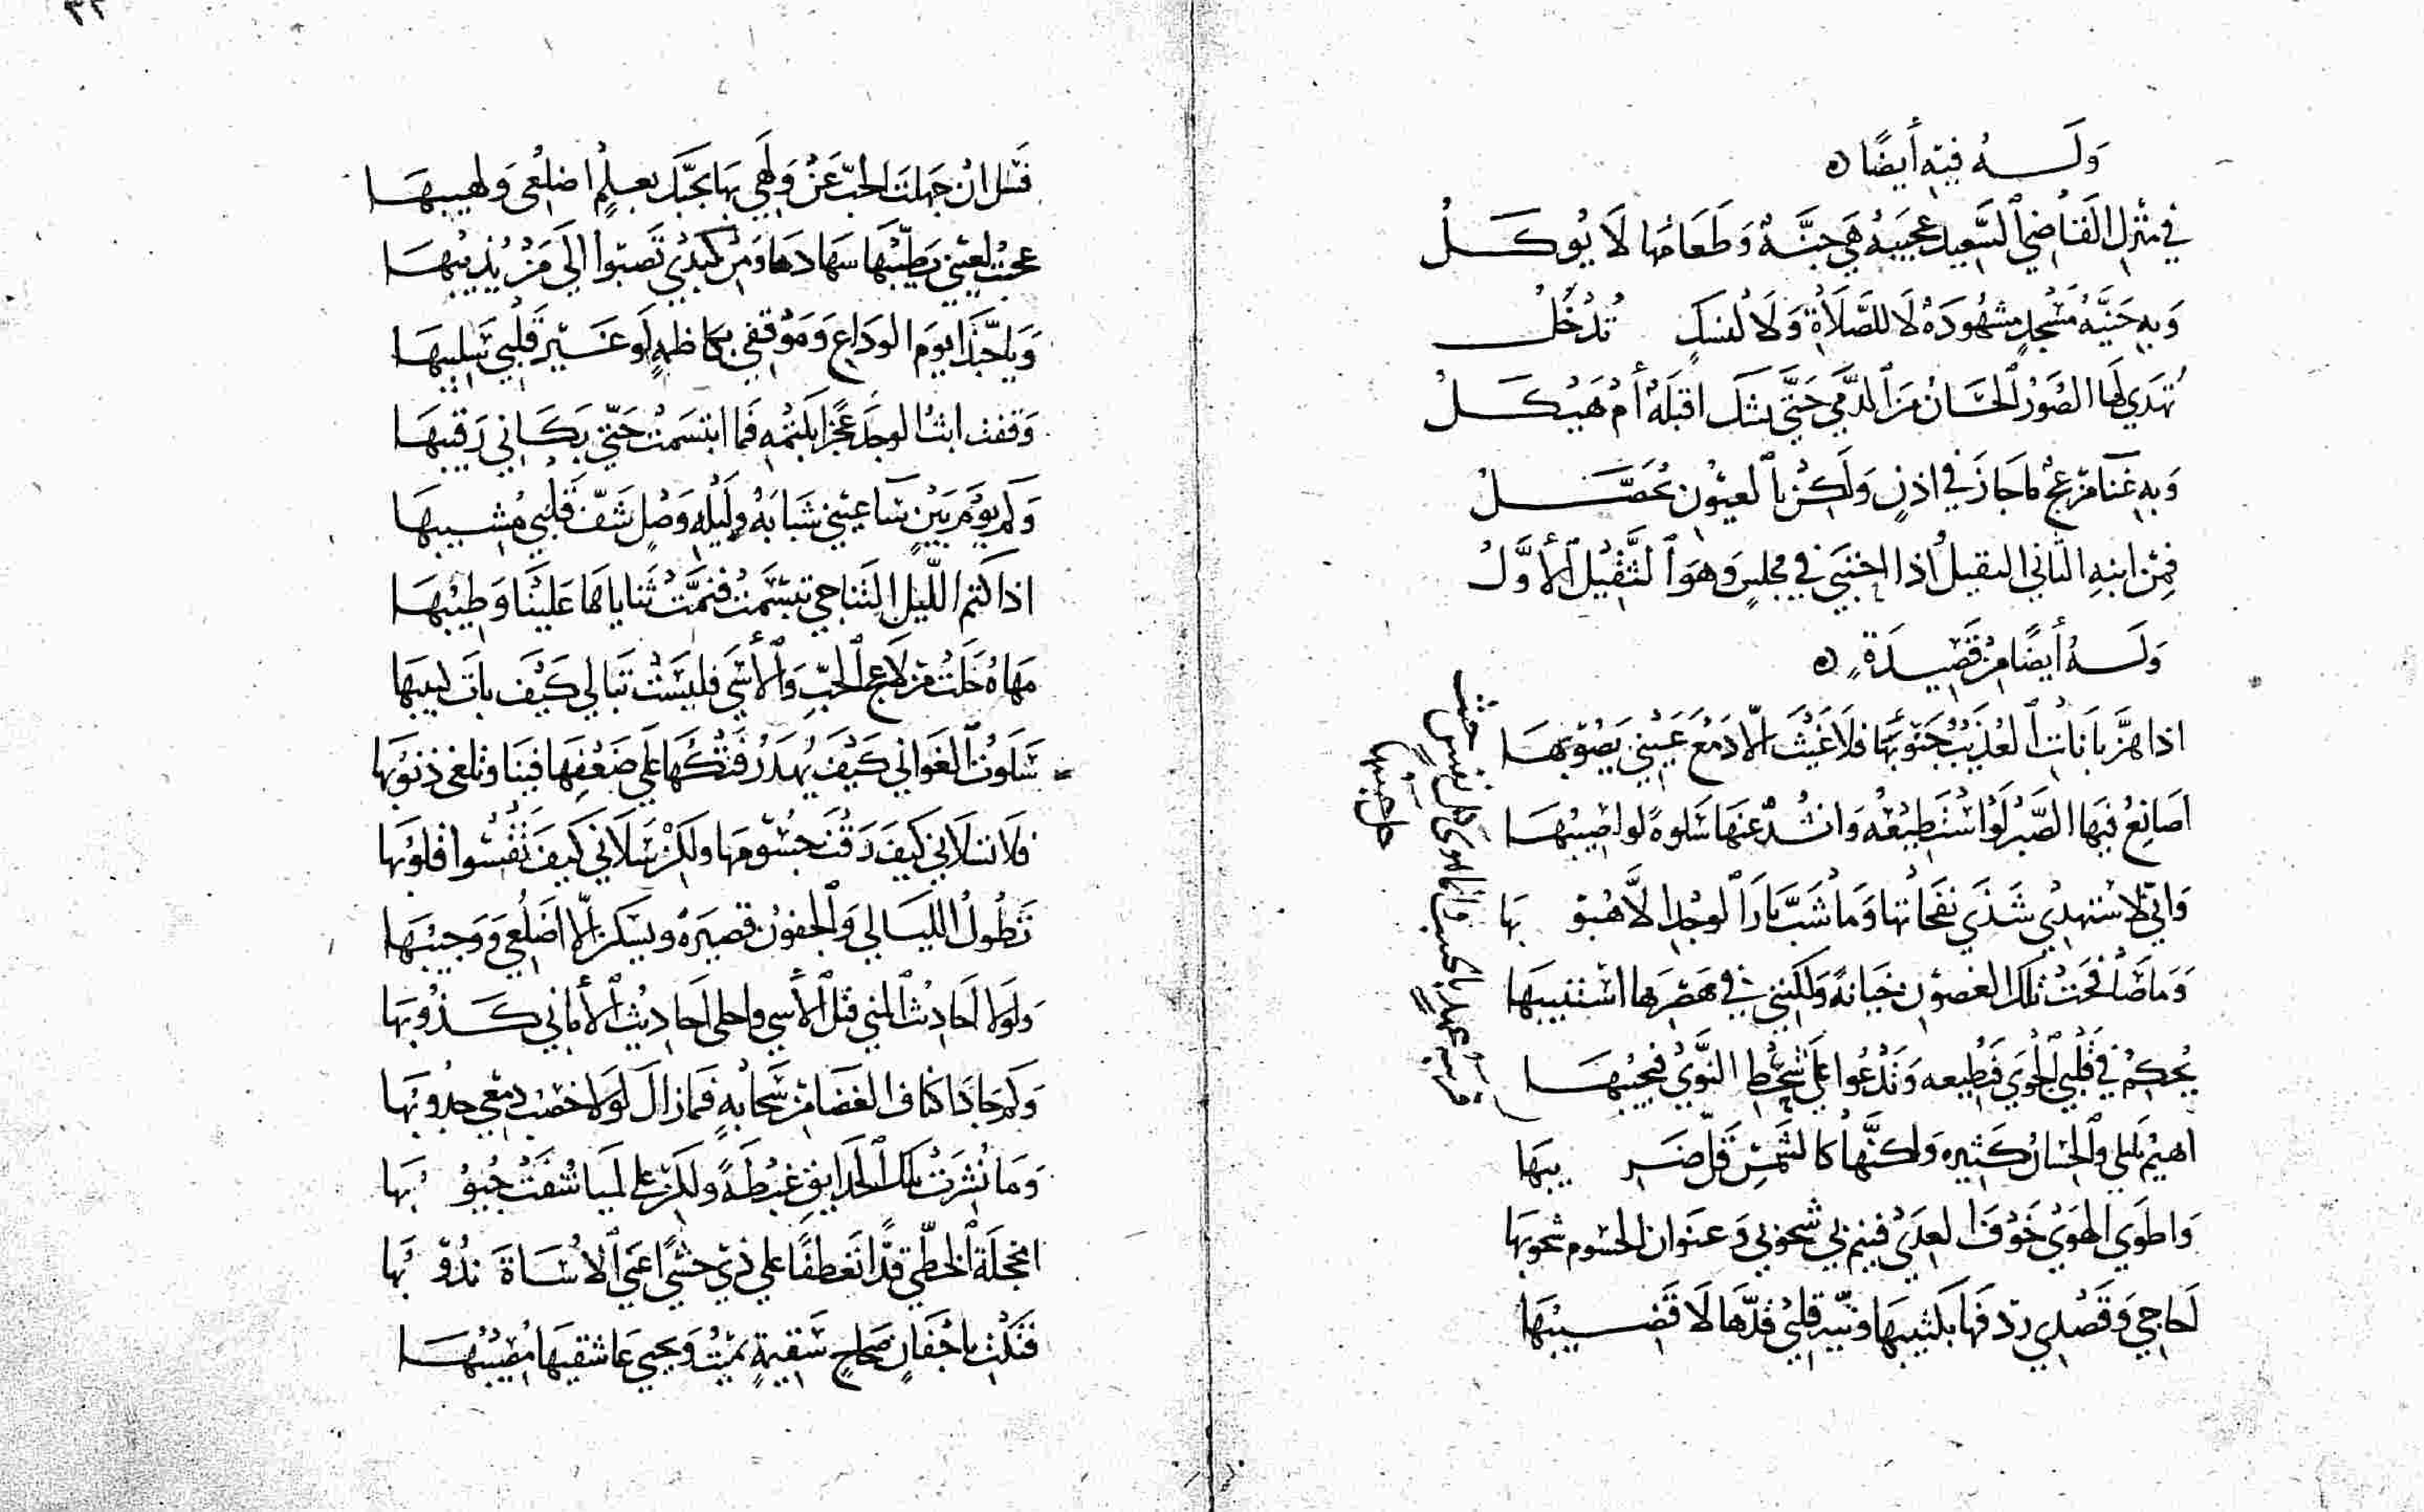 وَلَــهُ فيهِ أيضًا ه
في منْزِلِ القَاضِي السَّعِيدِ عجيبَة هِيَ جنَّة وَطَعَامُهَا لَا يُوكَــلُ
وَبِهِ حَنِيَّةُ مَسْجِدٍ مشهُودَة لَا للصَّلَاةِ وَلَا لنُسكٍ تُدْخَلُ
تُهدَي لَهَا الصُّوَرُ الحسَانُ مِنَ الدّمَي حَتَّي يشك اقبلَة أم هَيْكَــلُ
وَبِهِ غنَا مزعج مَا جَازَ في اذنٍ وَلَكِنْ بالعيُونِ يُحَصَّــلُ
فِمنْ ابنهِ الثاني الثقيلُ اذا اختبَي في مجلسٍ وَهوَ الثَّقِيلُ الأوَّلُ
وَلَــهُ أيضًا مِنْ قَصِيــدَةٍ ه
اذا هزَّ بَانَاتِ العُذَيبِ جَنوبُهَا فلَا غَيْثَ إلّا دَمْعَ عَيْنِي يَصُوبهَــا
اصَانِعُ فيهَا الصَّبرَ لَوْ اسْتَطيعُه وَانشُدُ عنهَا سَلوةً لَو اصيبُهَــا
وَاِنّي لَاسْتهدِي شَذَي نفحَاتهَا وَمَا شَبَّ نارَ الوجْدِ إلَّا هُبوبهَا
وَمَا صَافحَتْ تلك الغصُون خيَانةً وَلَكنّنِي في هَصْرِهَا اسْتنيبهَا
يُحكمُ في قَلْبِي الجوَي فتُطيعه وَتدْعُوا عَلَي شحْطِ النَّوَي فَيجيبُهَــا
اهيمُ بليلي والحِسَانُ كَثيرة وَلكنَّهَا كالشَّمْسِ قَلّ ضَريبهَا
وَاطوَي الهَوَي خَوْفَ العِدَي فينم بي شحوبي وَعنوان الجسُوم شحوبهَا
لَحَاجي وَقَصْدي ردفهَا بكثيبهَا ونيّة قلبي قدّهَا لَا قَضــيبُهَا
قِفْ
فَتل ان جَهِلتَ الحبّ عَنْ وَلَهِي بهَا بحبّك بعــلمُ اضلُعي وَلهيبهَــا
عجبتُ لعيني يَطّبيهَا سهَادهَا وَمنْ كَبدي تَصبُوا اليَ مَنْ يُذِيبُهَــا
وَيا حَبَّذَا يومَ الوَدَاعِ وَمَوْقِفي بكَاظمةٍ لَو غَــيْر قَلْبِي سَليبهَا
وَقفتُ ابثّ الوجْد عَجْزًا بكتْمِهِ فَما ابتسَمت حَتّي بَكَــاني رَقيبهَا
وَكَم يَوْمَ بَيْنٍ سَاعَتِي شَبَابَهُ وَليلَةِ وَصْلٍ شَفّ قَلْبي مُشــيبهَا
اذا كَتم اللّيل التناجي تبَسَّمَتْ فنمَّتْ ثَناياهَا عَلَيْنَا وَطِيْبُهَــا
مهَاةُ خَلَتْ مِن لَاعج الحبِّ وَالأَسَي فليسَتْ تبَالي كَيْفَ باتَ لبيبهَا
سَلَوتُ الغَوَاني كَيْفَ يُهْدَرُ فَتْكُهَا عَلَي ضَعْفِهَا فينَا وَتلغى ذنوُبهَا
فلَا تسَلَاني كَيفَ رَقّتْ جسُومهَا ولكِنْ سَلَانِي كَيفَ تَقْسُوا قلوُبهَا
تَطُولُ الليَــالي وَالجفونُ قصيرَة وَيسكن إلّا اضَلُعِي وَوَجيبُهَــا
وَلَولَا احَاديثُ المني قتل الأسي وَاحلي احَاديث الأماني كَــذُوبهَا
وَلَم جَادَ اكناف الغَضَا من سَحَابةٍ فَمَا زالَ لَولَا خصبُ دمْعي جدُوبهَا
وَمَا نُشرَتْ تلكَ الحدَايق غبْطةً وَلكنْ علي لميا شُقّتْ جيُوبهَا
امخجلَة الخطّي قدًّا تَعَطفًا علي ذي حَشًي اعيَي الأسَــاةَ ندُوبُهَا
فَتكْتِ باجْفَانٍ صحَاحٍ سَقِيمةٍ تميتُ وَيحيي عَاشقيهَا مُصِيبُهَــا